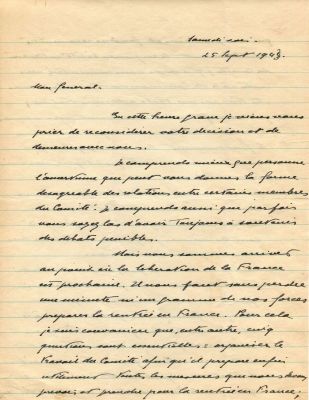 Samedi soir.
25 Sept 1943.
Mon General.
En cette heure grave je viens vous
prier de reconsidérer votre décision et de
demeurer avec nous.
Je comprends mieux que personne
l'amertume que peut vous donner la forme
désagréable des relations entre certains membres
du Comité. Je comprends aussi que parfois
vous soyez las d'avoir toujours à soutenir
des débats pénibles.
Mais nous sommes arrivés
au point où la libération de la France
est prochaine. Il nous faut sans perdre
une minute ni un gramme de nos forces
préparer la rentrée en France. Pour cela
je suis convaincu que, entre autre, cinq
questions sont essentielles : organiser le
Travail du Comité afin qu'il prépare enfin
utilement toutes les mesures que nous devons
prévoir et prendre pour la rentrée en France,